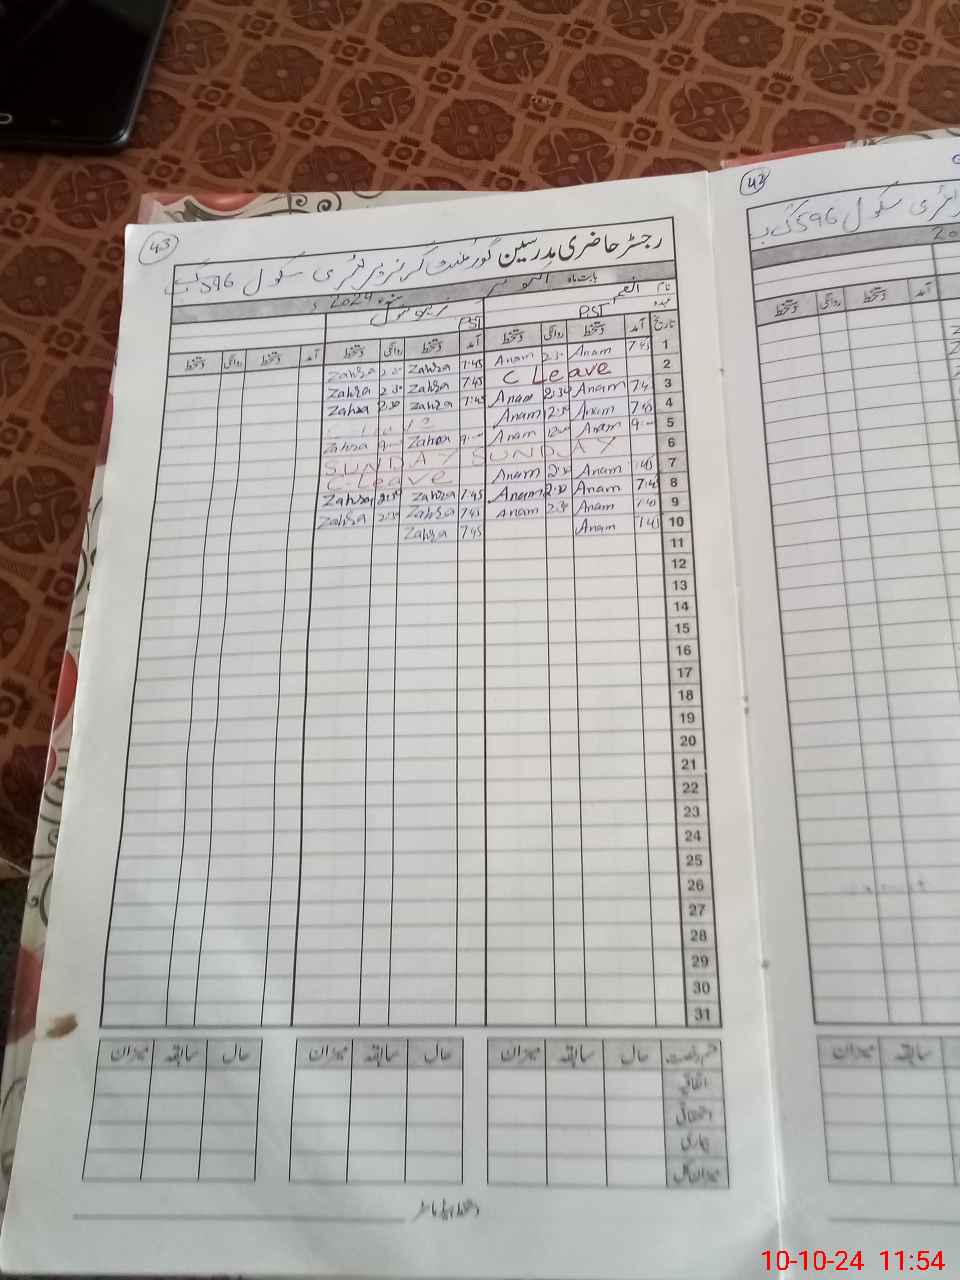 43
رجسٹر حاضری مدرسین گورنمنٹ گرلز پرائمری سکول 596 گ ب
بابت ماہ اکتوبر 2024ء
نام
عہدہ PST PST
تاریخ آمد دستخط روانگی دستخط آمد دستخط روانگی دستخط آمد دستخط روانگی دستخط
1 7:45 Anam 2:30 Anam 7:45 Zahra 2:30 Zahra
2 C Leave 7:45 Zahra 2:30 Zahra
3 Anam 2:30 Anam 7:45 Zahra 2:30 Zahra
4 7:45 Anam 2:30 Anam
5 Anam Anam Zahra Zahra
6 SUNDAY SUNDAY
7 Anam Anam C-Leave
8 7:45 Anam 2:30 Anam 7:45 Zahra Zahra
9 Anam 2:30 Anam 7:45 Zahra 2:30 Zahra
10 Anam 7:45 Zahra
11
12
13
14
15
16
17
18
19
20
21
22
23
24
25
26
27
28
29
30
31
قسم رخصت حال سابقہ میزان حال سابقہ میزان حال سابقہ میزان
اتفاقیہ
استحقاقی
بیماری
میزان کل
دستخط ہیڈ ماسٹر
42
سکول 596 گ ب
آمد دستخط روانگی دستخط
سابقہ میزان
10-10-24 11:54